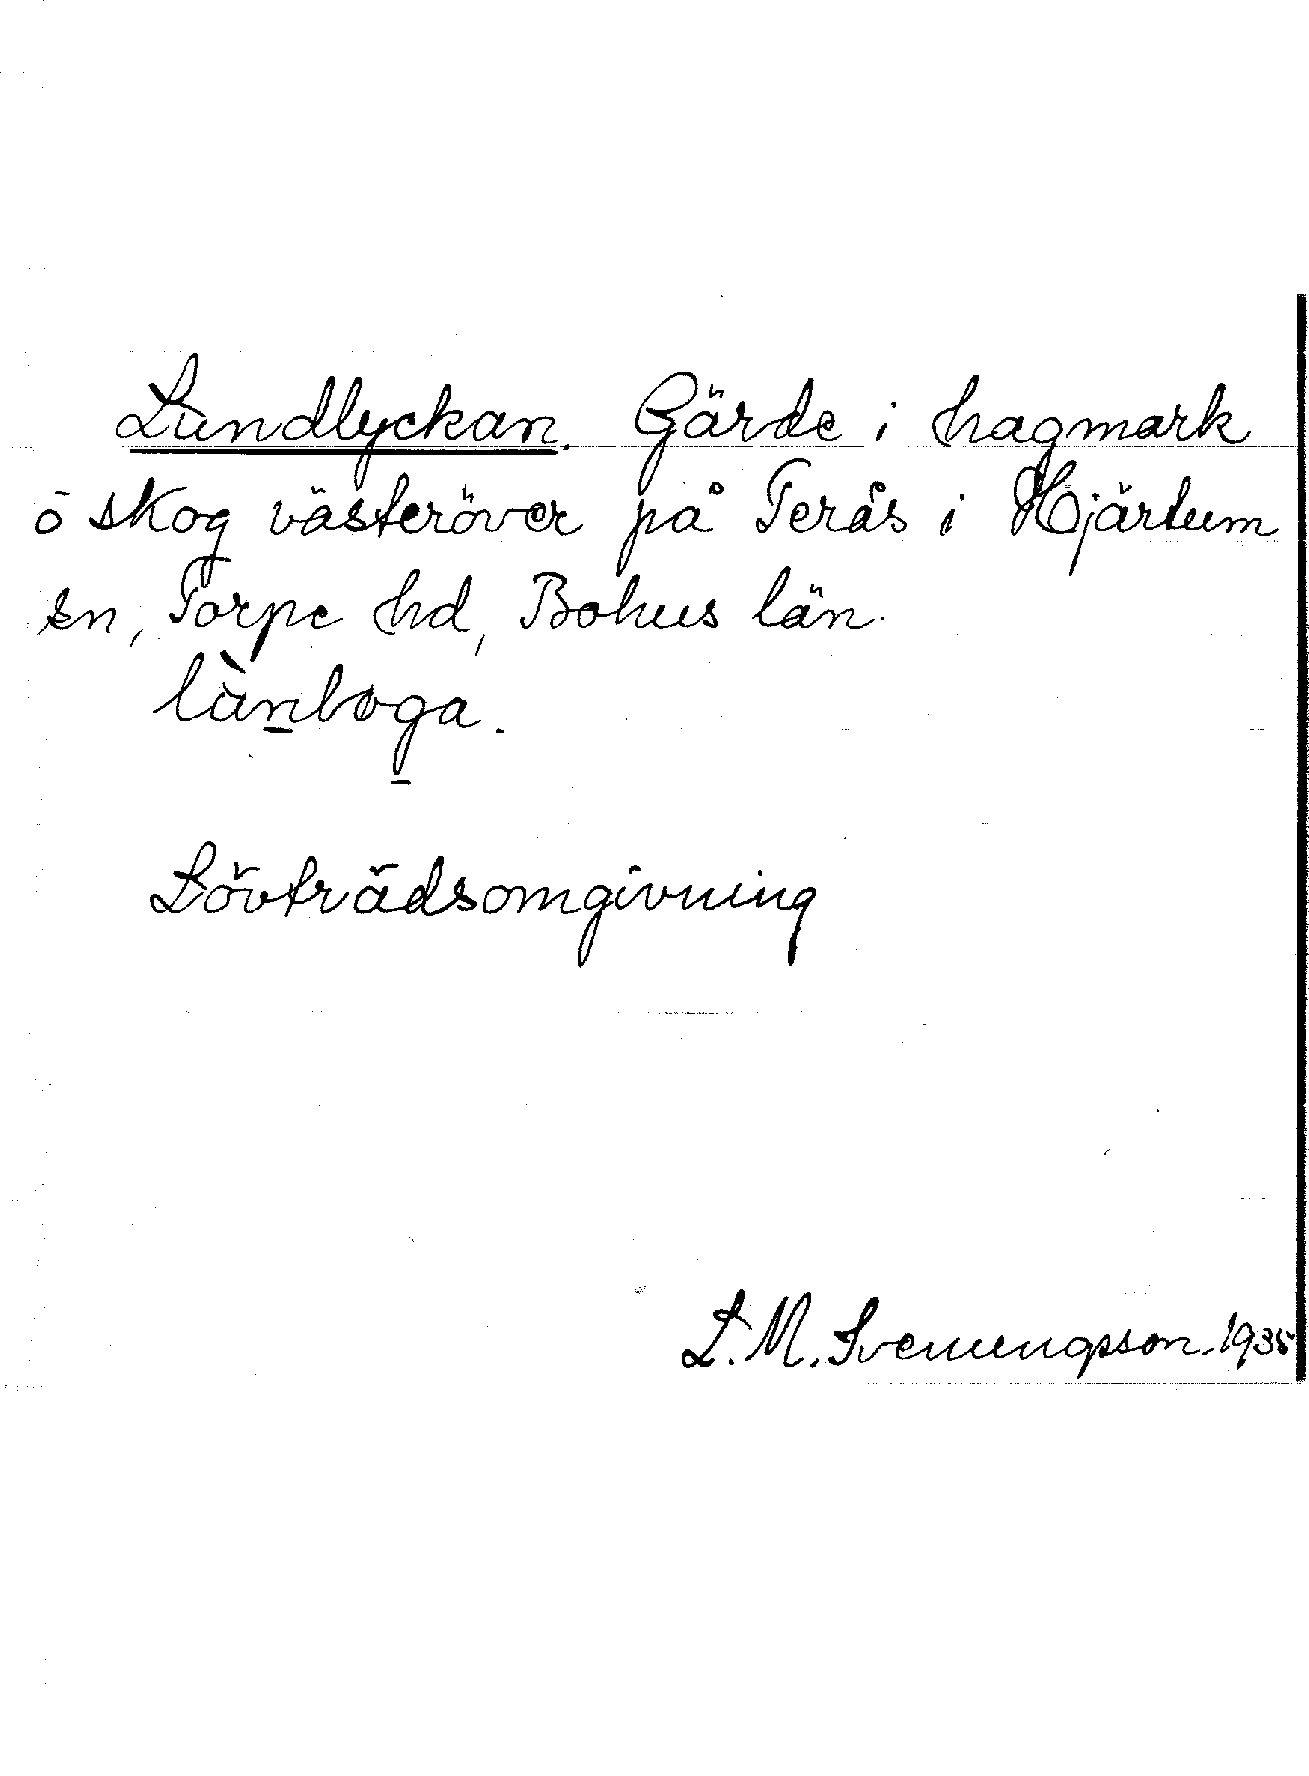 Lundlyckan. Gärde i hagmark
ö skog västeröver på Terås i Hjärtum
sn, Torpe hd, Bohus län.
lànboga.
Lövträdsomgivning
L. M. Svenungsson. 1935